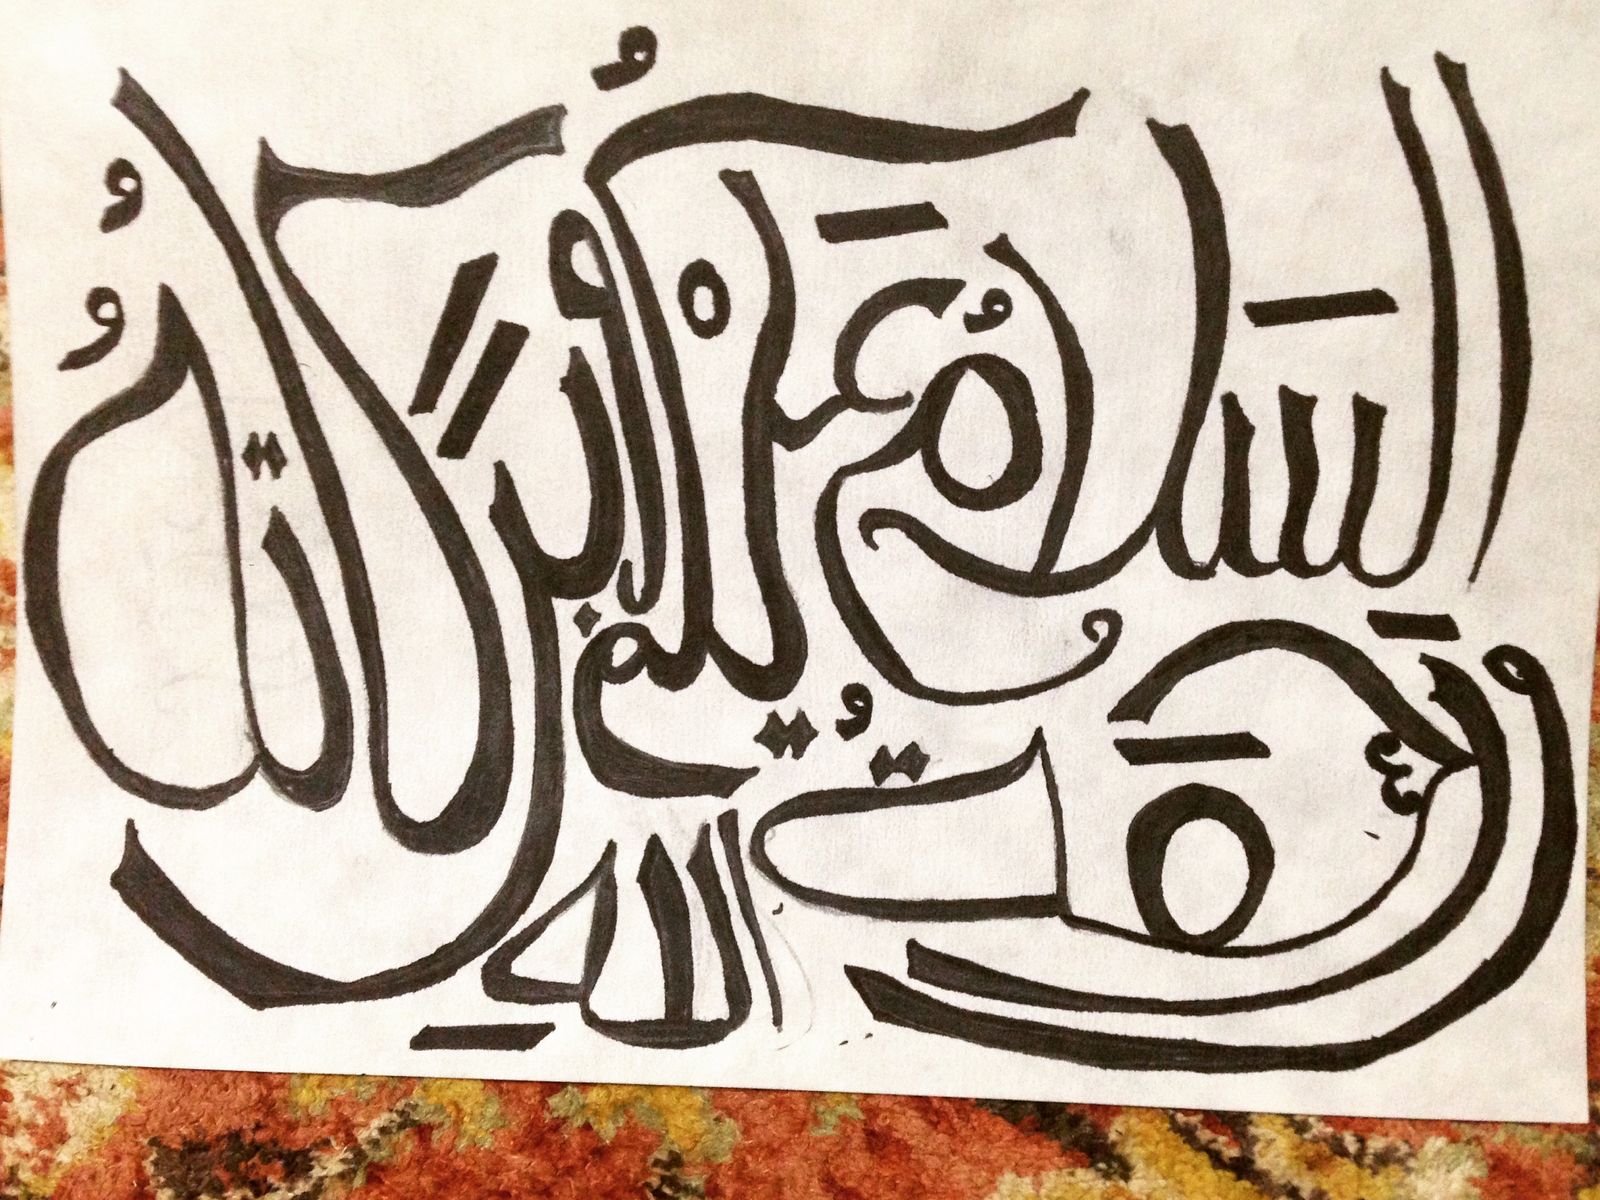 السَلامُ عَلَيْكُم
وَرَحمَةُ اللهِ
وَبَرَكاتُهُ